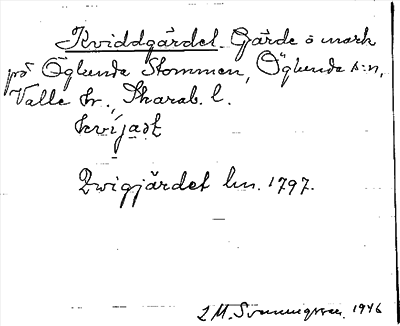 Kviddgärdet. Gärde o mark
på Öglunda Stommen, Öglunda s:n,
Valle hr., Skarab. l.
Qvigjärdet lm. 1797.
1946